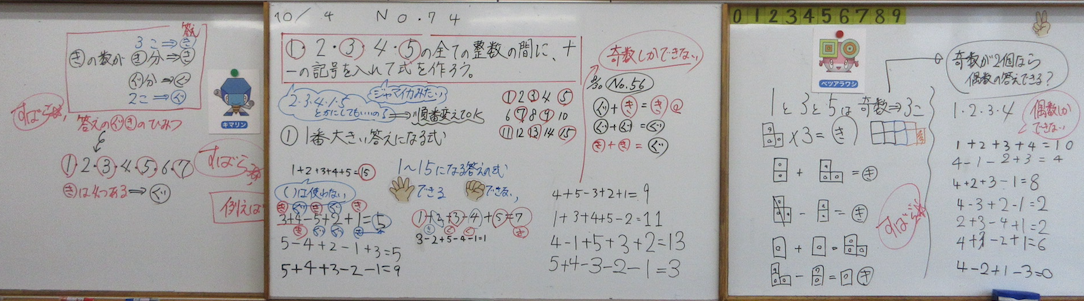 答え
3こ⇒き
きの数が き分⇒き
ぐ分⇒ぐ
2こ⇒ぐ
すばらしい
答えのぐきのひみつ
キマリン
1・2・3・4・5・6・7
すばらしい
きは4つある⇒ぐ
例えば
10/4 No.74
1・2・3・4・5の全ての整数の間に、+
−の記号を入れて式を作ろう。
ジャマイカみたい
2・3・4・1・5
とかにしてもいいの? ⇒順番変えてOK
1 2 3 4 5
6 7 8 9 10
11 12 13 14 15
① 1番大きい答えになる式
1+2+3+4+5=15
1~15になる答えの式
できる できない
( )は使わない
3+4-5+2+1=5
1+2+3-4+5=7
3-2+5-4-1=1
5-4+2-1+3=5
5+4+3-2-1=9
奇数しかできない
No.56
ぐ+き=き
ぐ+ぐ=ぐ
き+き=ぐ
4+5-3+2+1=9
1+3+4+5-2=11
4-1+5+3+2=13
5+4-3-2-1=3
0 1 2 3 4 5 6 7 8 9
ベツアラワシ
奇数が2個なら
偶数の答えできる?
1と3と5は奇数⇒3こ
×3=き
+ =き
- =き
+ =
- = き
すばらしい
1・2・3・4
偶数しか
できない
1+2+3+4=10
4-1-2+3=4
4+2+3-1=8
4-3+2-1=2
2+3-4+1=2
4+3-2+1=6
4-2+1-3=0